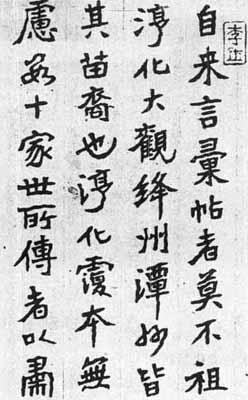 自来言彙帖者莫不祖
淳化大觀絳州潭皆
其苗裔也淳化覆本無
慮數十家世所傳者以肅